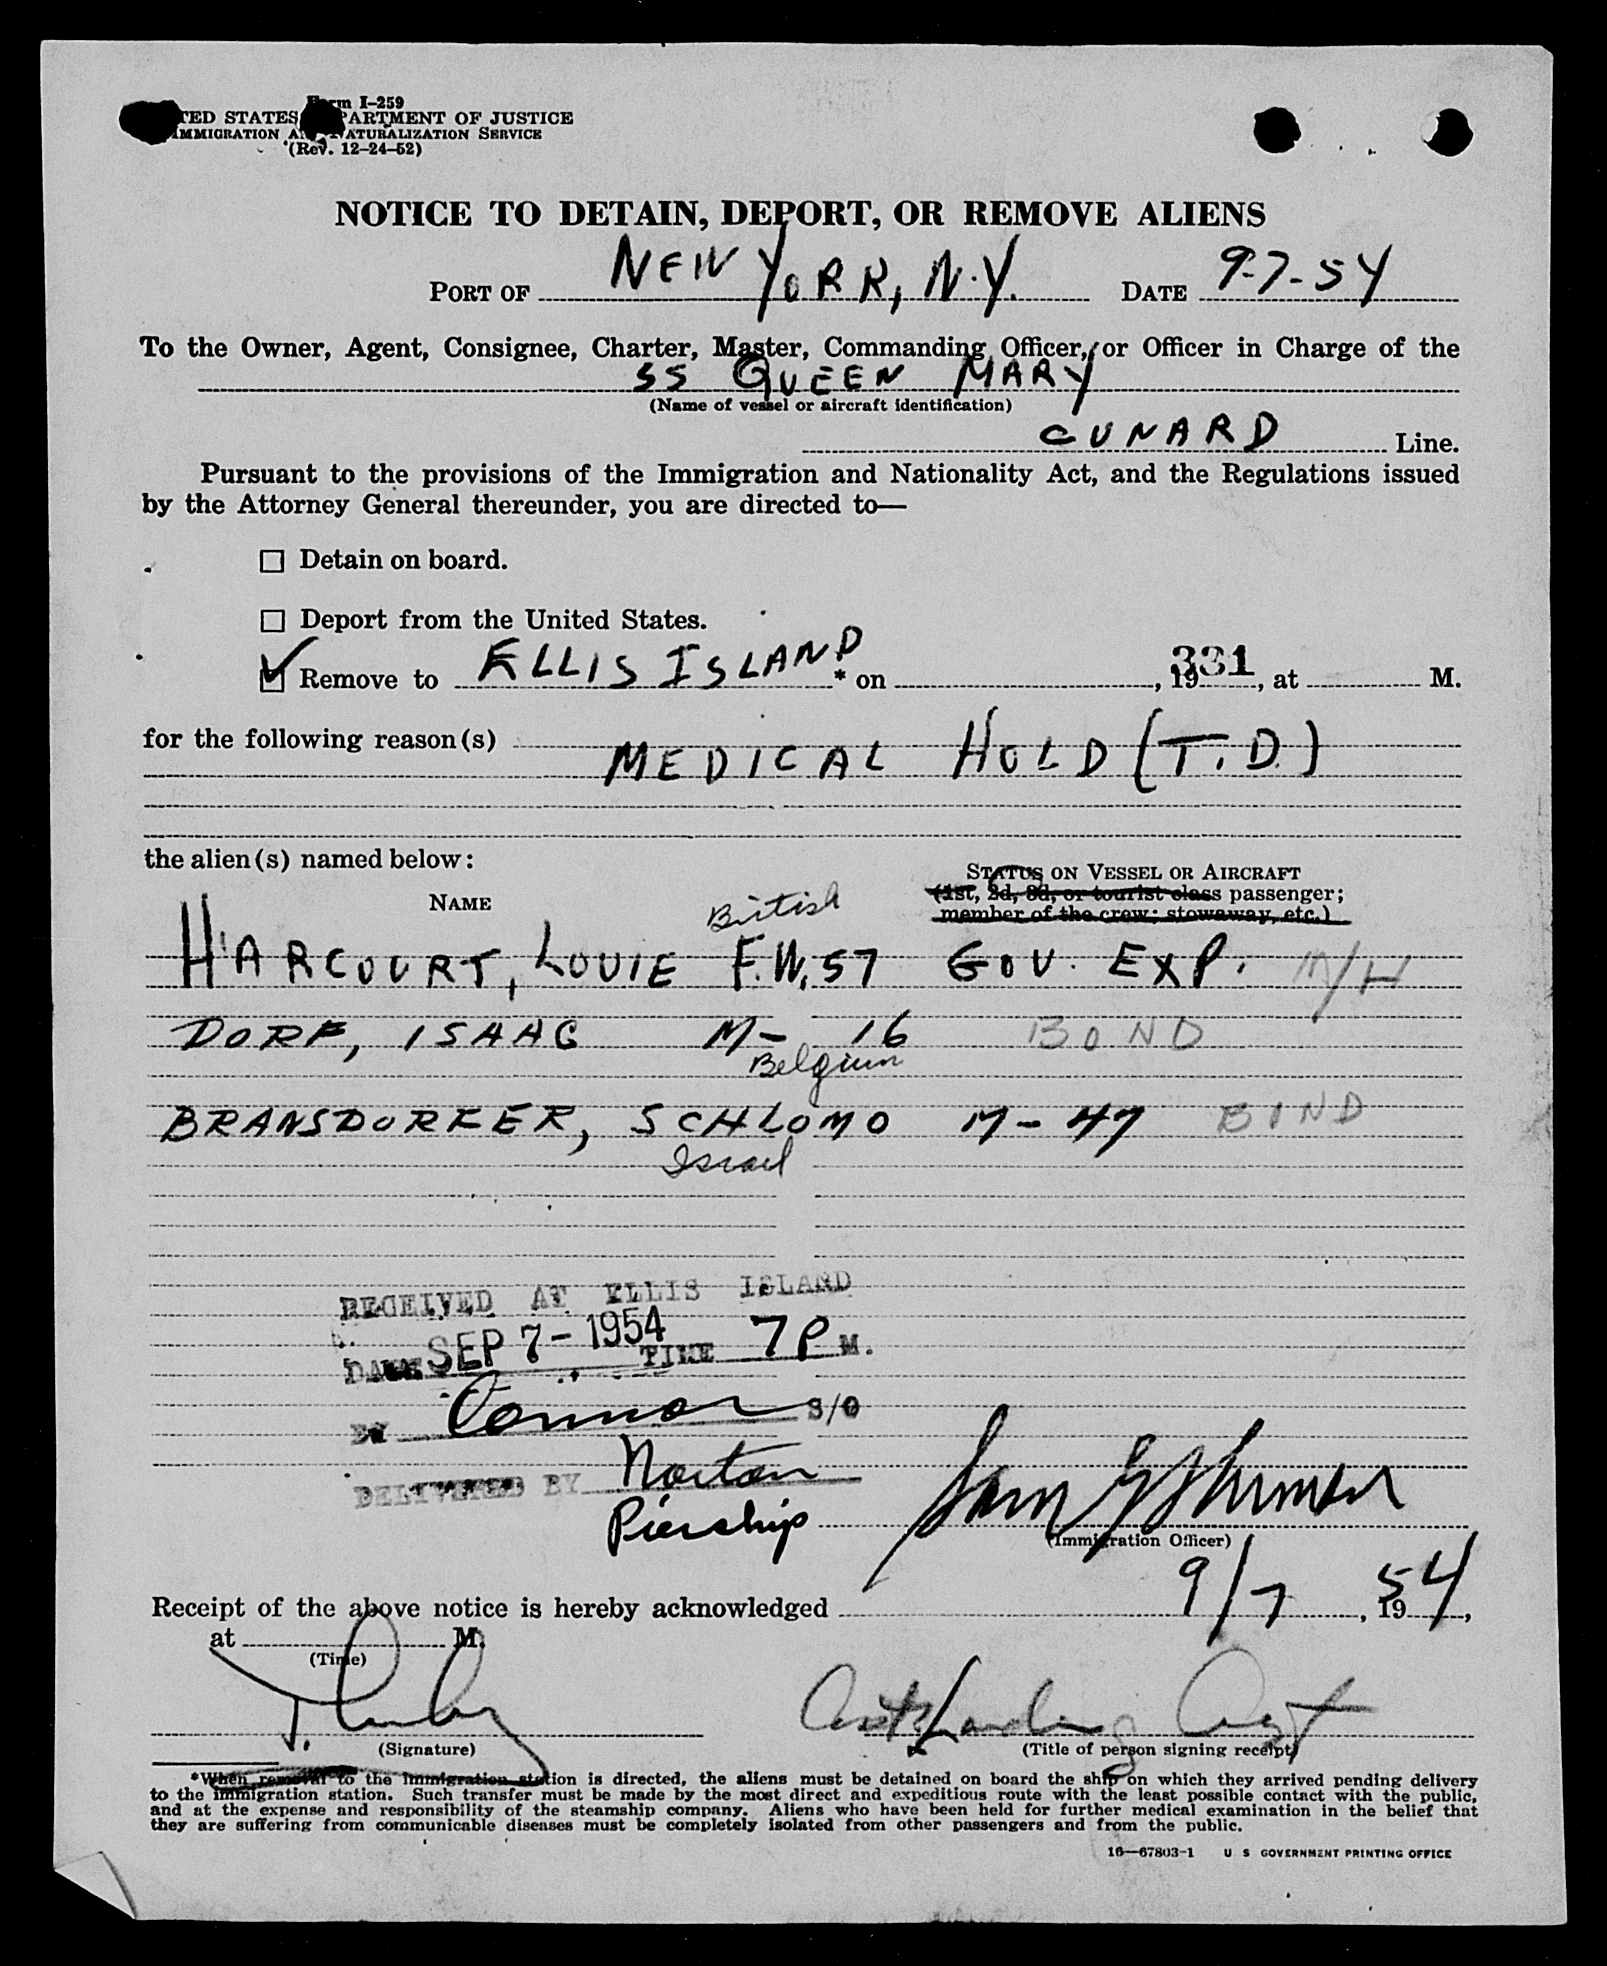 Form I-259
UNITED STATES DEPARTMENT OF JUSTICE
IMMIGRATION AND NATURALIZATION SERVICE
(Rev. 12-24-52)
NOTICE TO DETAIN, DEPORT, OR REMOVE ALIENS
PORT OF NEW YORK, N.Y. DATE 9-7-54
To the Owner, Agent, Consignee, Charter, Master, Commanding Officer, or Officer in Charge of the
SS QUEEN MARY
(Name of vessel or aircraft identification)
CUNARD Line.
Pursuant to the provisions of the Immigration and Nationality Act, and the Regulations issued
by the Attorney General thereunder, you are directed to—
☐ Detain on board.
☐ Deport from the United States.
☑ Remove to ELLIS ISLAND * on , 19 331, at M.
for the following reason(s)
MEDICAL HOLD (T.D.)
the alien(s) named below:
STATUS ON VESSEL OR AIRCRAFT
NAME (1st, 2d, 3d, or tourist class passenger;
British member of the crew; stowaway, etc.)
HARCOURT, LOUIE F.W. 57 GOV. EXP. M/H
DORF, ISAAC M- 16 BOND
Belgium
BRANSDORFER, SCHLOMO M-47 BOND
Israel
RECEIVED AT ELLIS ISLAND
DATE SEP 7- 1954 TIME 7 P M.
BY Connor S/O
DELIVERED BY Norton
Pership
(Immigration Officer)
Receipt of the above notice is hereby acknowledged 9/7, 1954,
at M.
(Time)
Asst Landing Agt
(Signature) (Title of person signing receipt)
*When removal to the immigration station is directed, the aliens must be detained on board the ship on which they arrived pending delivery
to the immigration station. Such transfer must be made by the most direct and expeditious route with the least possible contact with the public,
and at the expense and responsibility of the steamship company. Aliens who have been held for further medical examination in the belief that
they are suffering from communicable diseases must be completely isolated from other passengers and from the public.
16—67803-1 U S GOVERNMENT PRINTING OFFICE